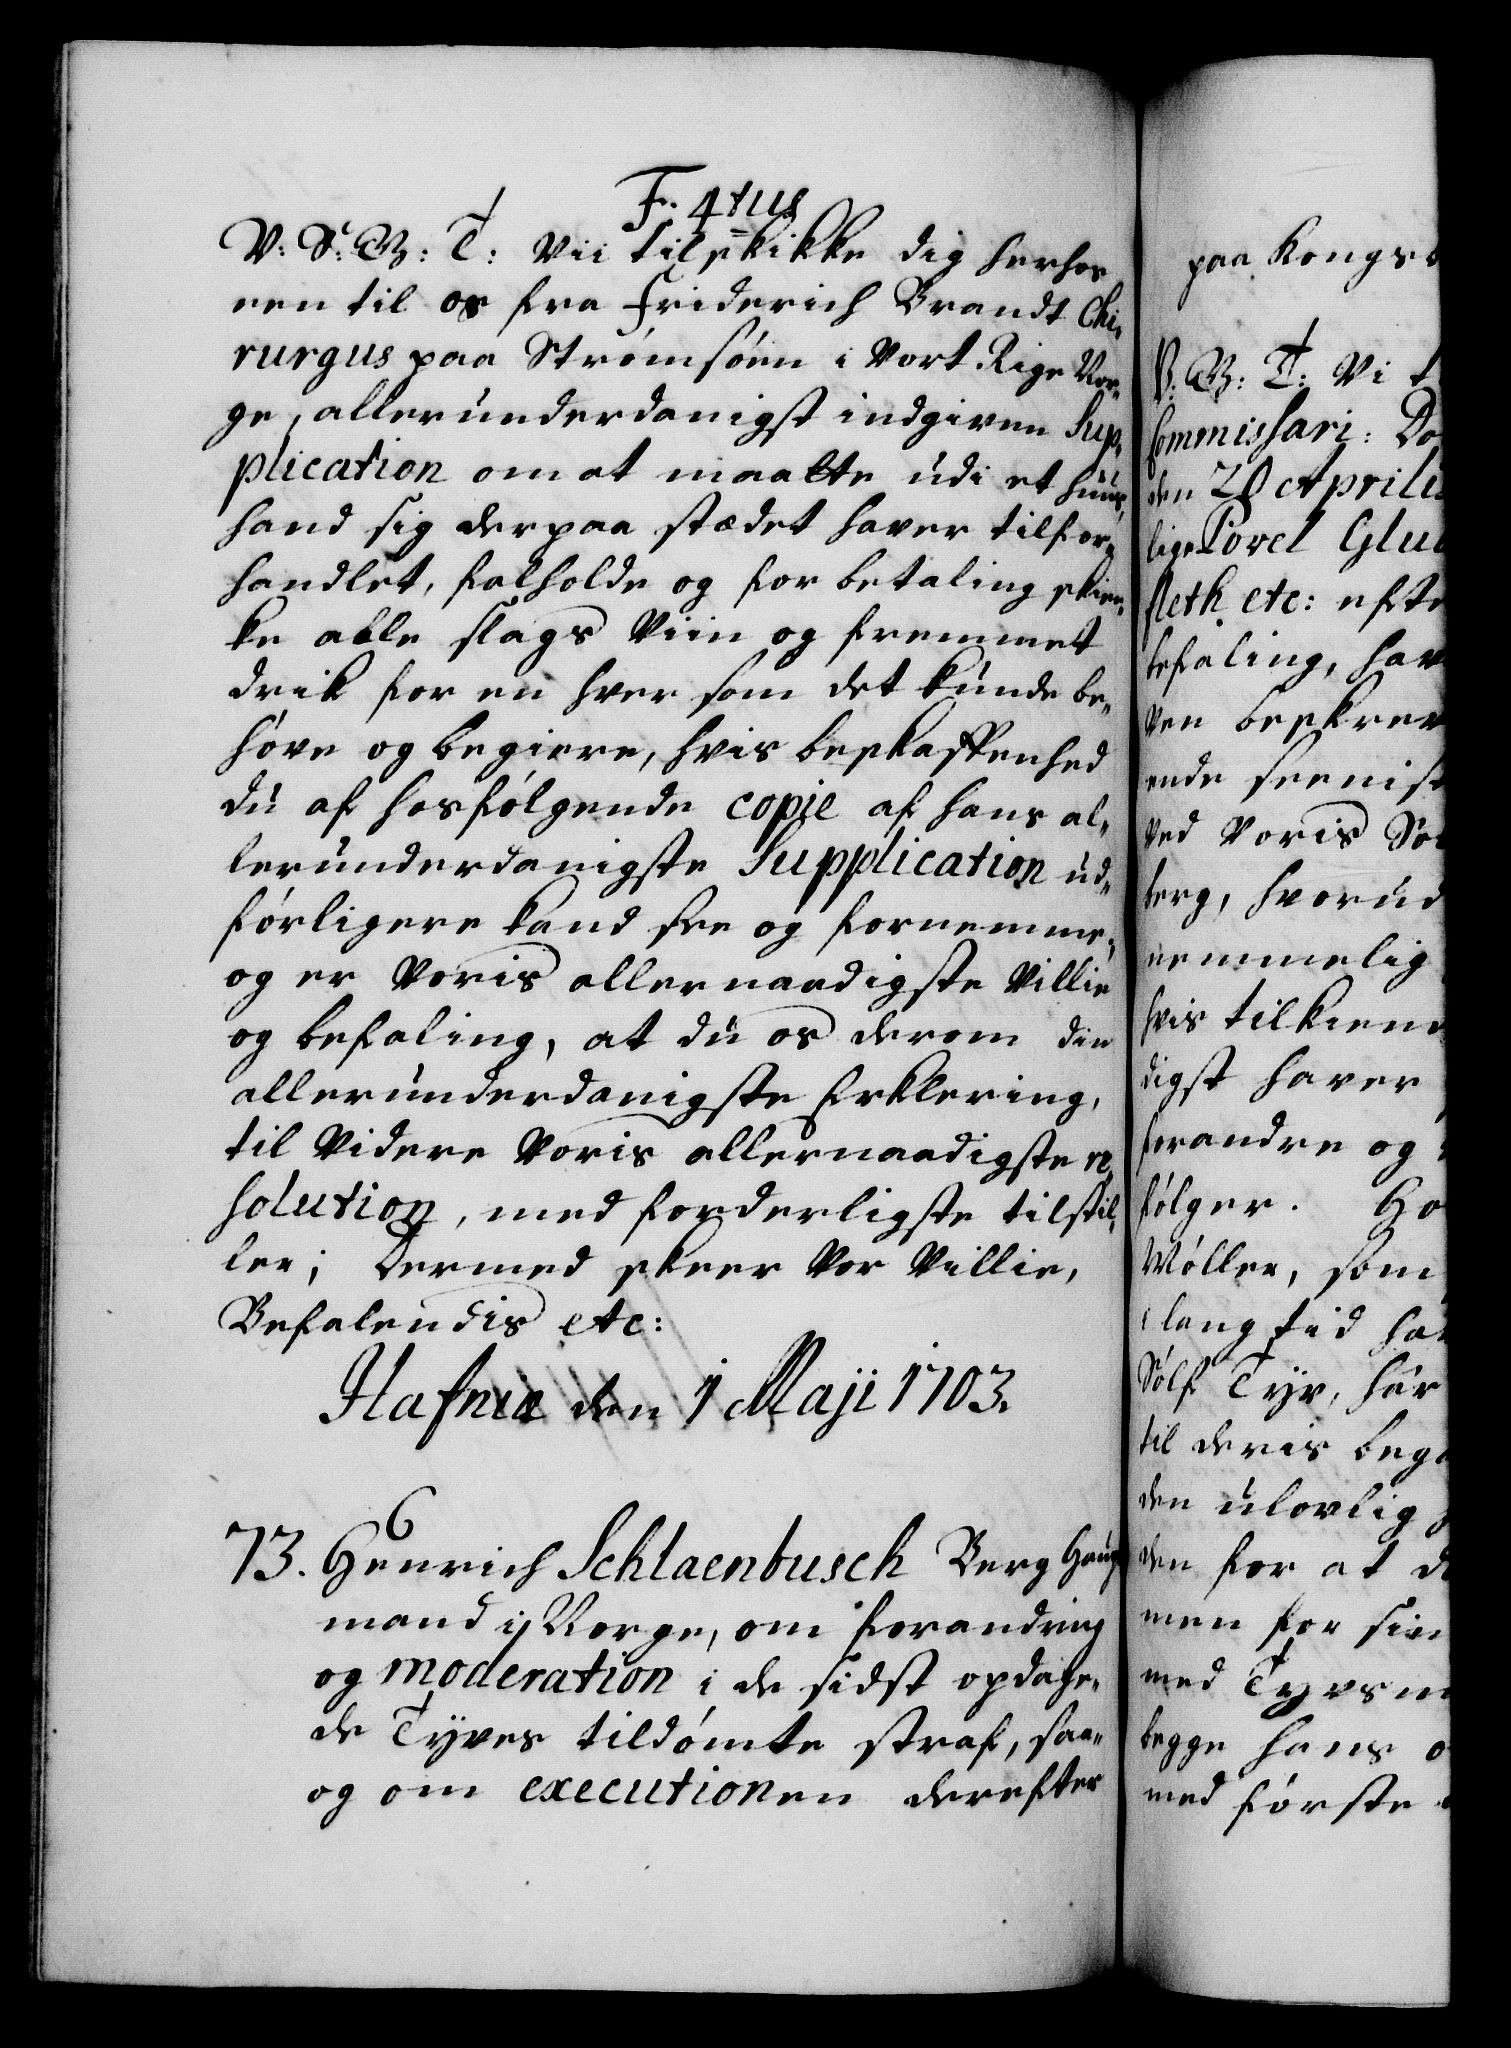 F. 4tus
V: S: B: T: Vii tilskikke dig herhos
een til os fra Friderich Brandt Chi„
rurgus paa Strömsöen i Vort Rige Nor„
ge, allerunderdanigst indgiven Sup„
plication om at maatte udi et huus,
hand sig der paa stædet haver tilfor„
handlet, falholde og for betaling skien„
ke alle slags Viin og fremmet
drik for en hver som det kunde be„
höve og begiere, hvis beskaffenhed
du af hosfölgende copie af hans al„
lerunderdanigste Supplication ud„
förligere kand see og fornemme,
og er Voris allernaadigste Villie
og befaling, at du os derom din
allerunderdanigste Erklering,
til Videre Voris allernaadigste re„
solution, med forderligste tilstil„
ler; Dermed skeer Vor Villie,
Befalendis etc:
Hafniæ den 1 Maji 1703.
73. Henrich Schlaenbusch Berg Haupt
mand i Norge, om forandring
og moderation i de sidst opdage„
de Tyves tildömte straf, saa„
og om executionen derefter
paa Kongsb
B: T: Vi t
Commissari: Do
den 28 Aprilis
lige Povel Glu
fleth etc: efte
befaling, hav
ven beskrev
ende seenist
ved Voris Söl
berg, hvorud
nemmelig
hvis tilkiend
digst haver
forandre og
fölger. Ho
Möller, som
i lang tid ha
Sölf Tyv, har
til deris beg
den ulovlig
den for at d
men for sin
med Tyvsm
begge hans o
med förste